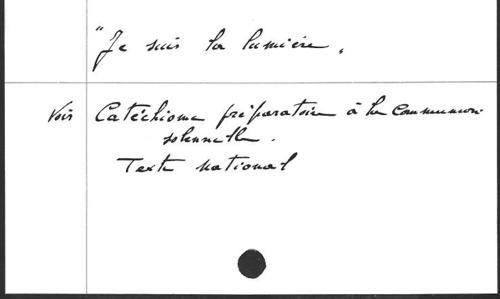 "Je suis la lumière,
Voir Catéchisme préparatoire à la Communion
solennelle.
Texte national